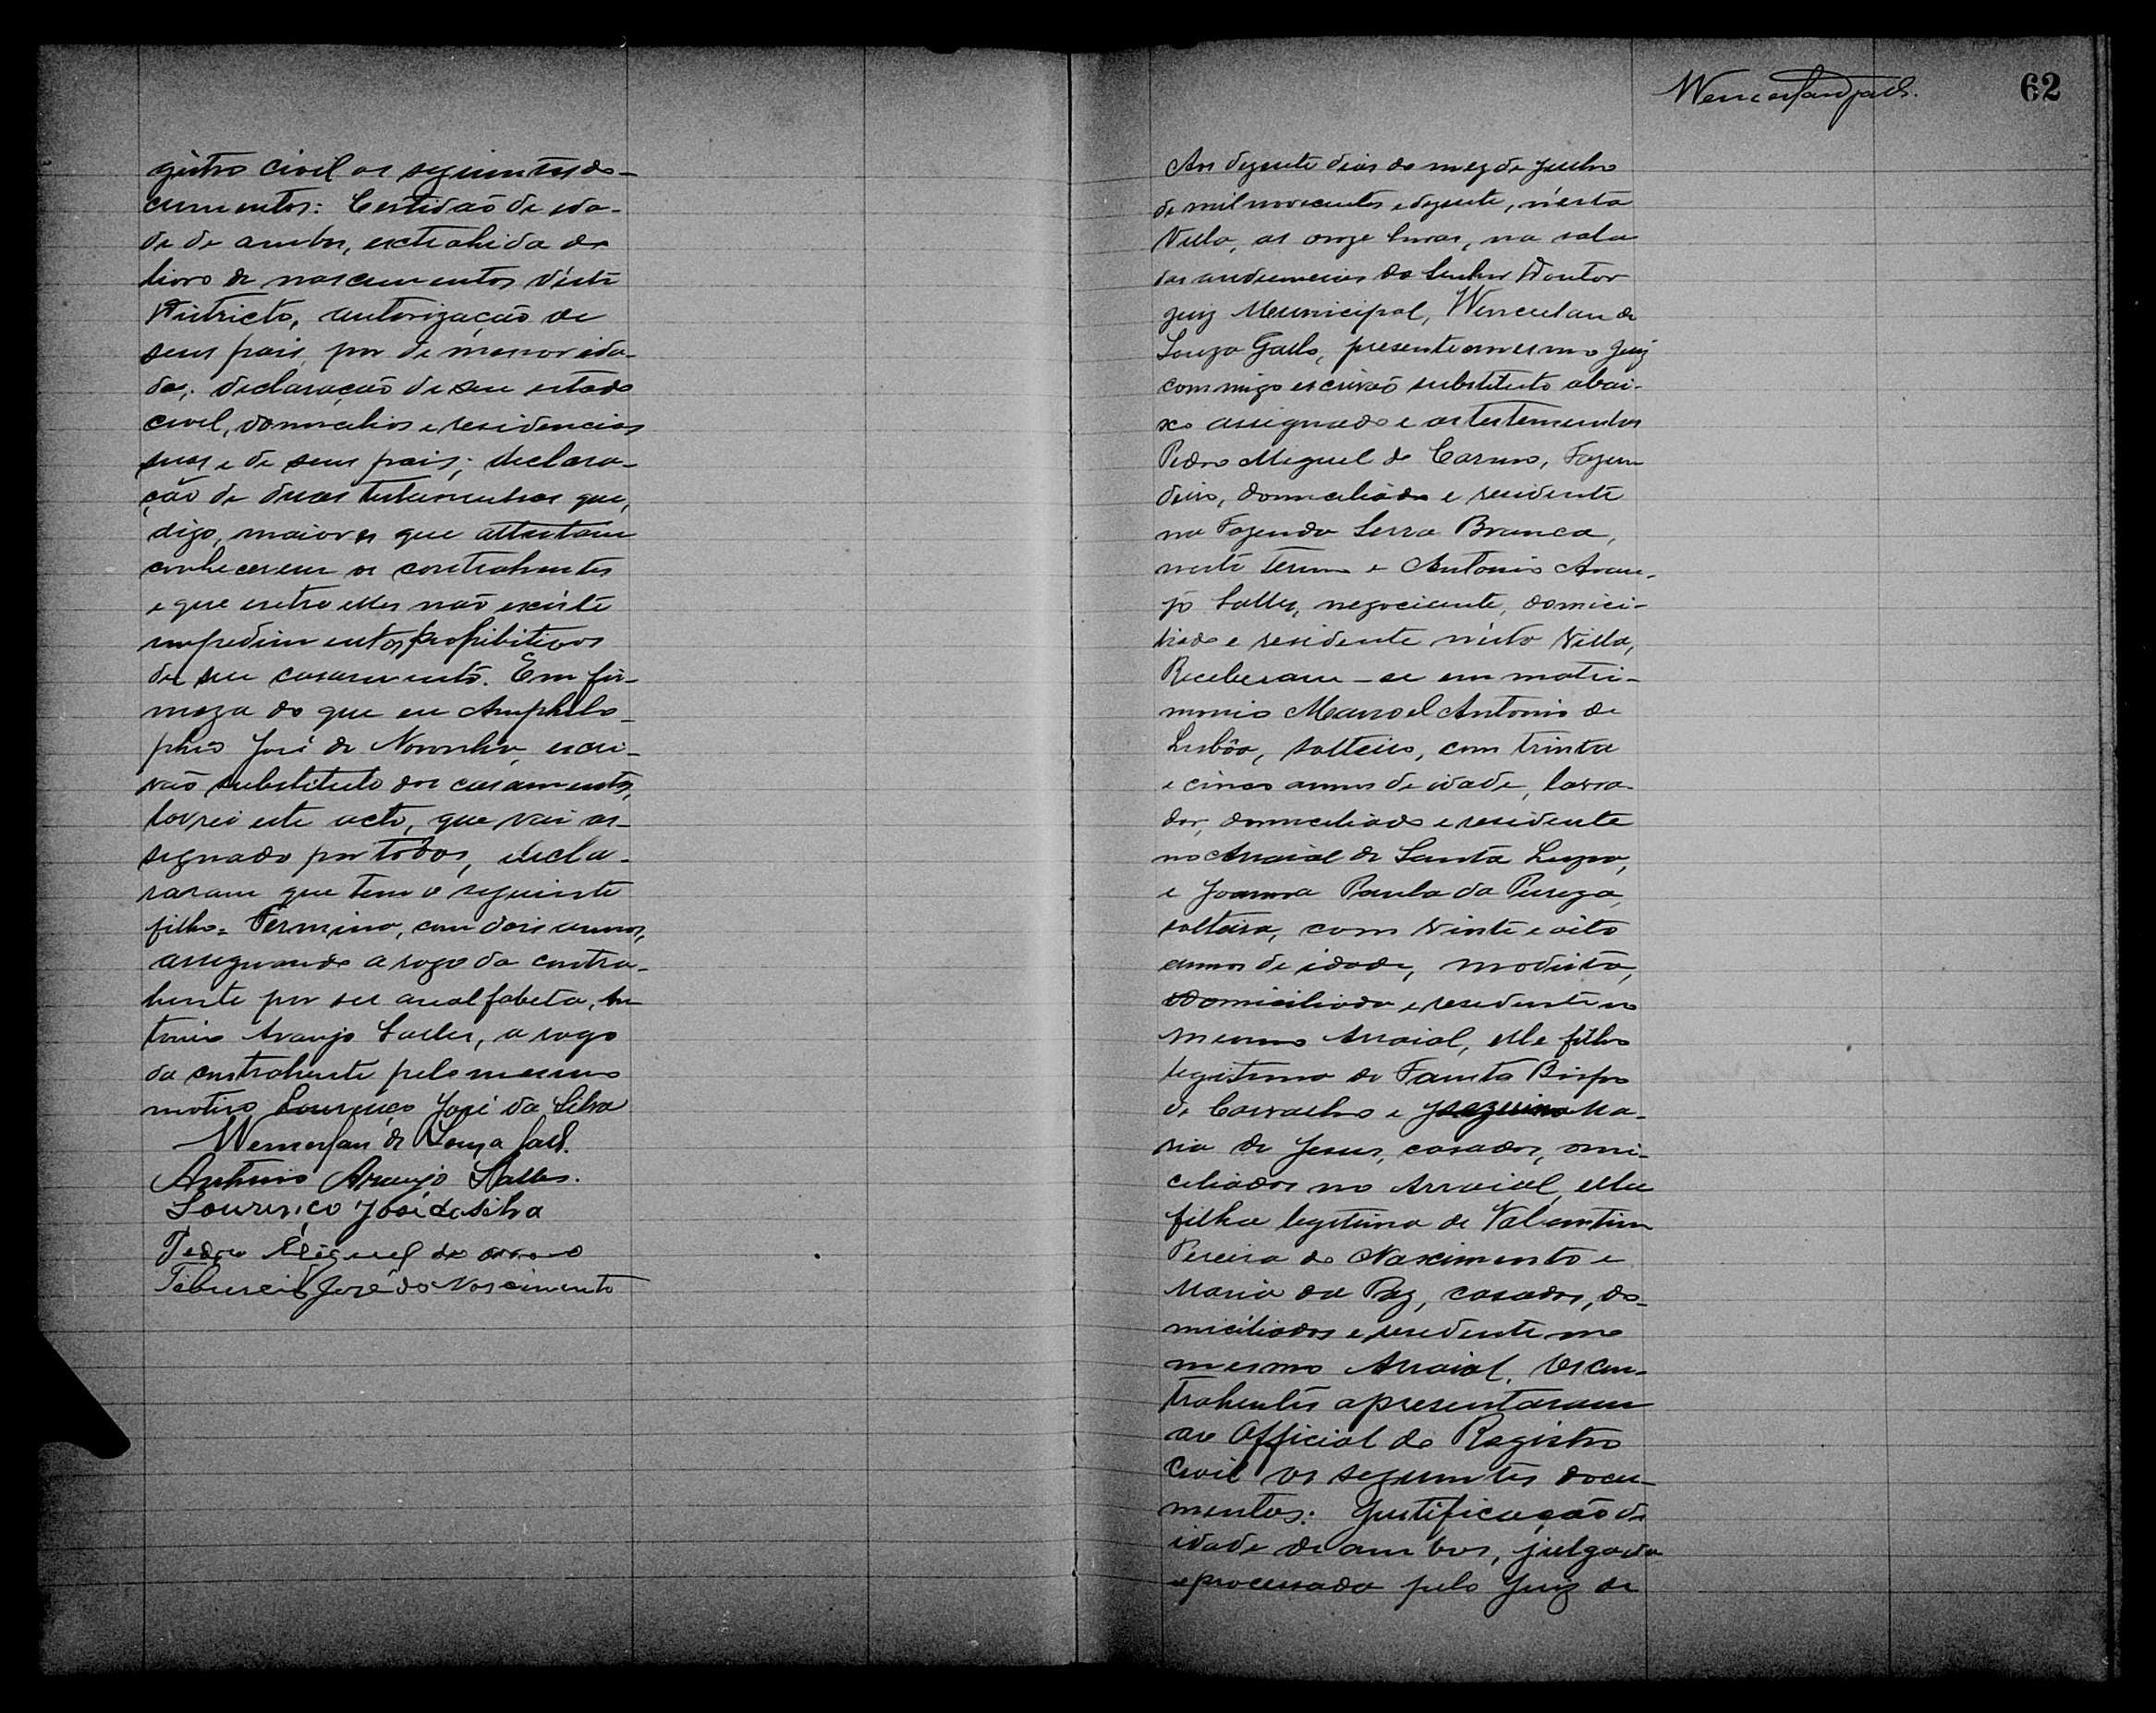 gistro civil os seguintes do-
cumentos: Certidão de ida-
de de ambos, extrahida do
livro de nascimentos déste
Districto, autorização de
seus pais, por de menor ida-
de; declaração de seu estado
civel, domicilios e residencias
suas e de seus pais; declara-
ção de duas testemunhas que,
digo, maiores que attestam
conhecerem os contrahentes
e que entre elles não existe
impedimentos prohibitivos
de seu casamento. Em fir-
meza do que eu Amphilo-
phio José de Noronha, escri-
vão substituto dos casamentos,
lavrei este acto, que vai as-
signado por todos, decla-
raram que tem o seguinte
filho = Firmino, com dois annos,
assignando a rogo do contra-
hente por ser analfabeta, An
tonio Araujo Salles, a rogo
da contrahente pelo mesmo
motivo Lourenço José da Silva
Wenceslau de Souza
Antonio Araujo Salles.
Lourenço José da Silva
Pedro Miguel do
Tiburcio José do Nascimento
62
Aos dezesete dias do mez de Julho
de mil novecentos e dezesete, n'esta
Villa, as onze horas, na sala
das audiencias do Senhor Doutor
Juiz Municipal, Wenceslau de
Souza Gallo, presente o mesmo Juiz
commigo escrivão substituto abai-
xo assignado e as testemunhas
Pedro Miguel do Carmo, Fazen
deiro, domiciliado e residente
na Fazenda Serra Branca,
neste Termo e Antonio Arau-
jo Salles, negociante, domici-
liado e residente nésta Villa,
Receberam-se em matri-
monio Manoel Antonio de
Lisbôa, solteiro, com trinta
e cinco annos de idade, lavra-
dor, domiciliado e residente
no Arraial de Santa Luzia,
e Joanna Paula da Pureza,
solteira, com vinte e oito
annos de idade, modista,
domiciliada e residente no
mesmo Arraial, elle filho
legitimo de Fausto Bispo
de Carvalho e Ma-
ria de Jesus, casados, omi-
ciliados no Arraial, ella
filha legitima de Valentim
Pereira do Nascimento e
Maria da Paz, casados, do-
miciliados e residente no
mesmo Arraial. Os con-
trahentes apresentaram
ao Official do Registro
Civil os seguintes docu-
mentos: Justificação de
idade de ambos, julgada
e processada pelo Juiz de